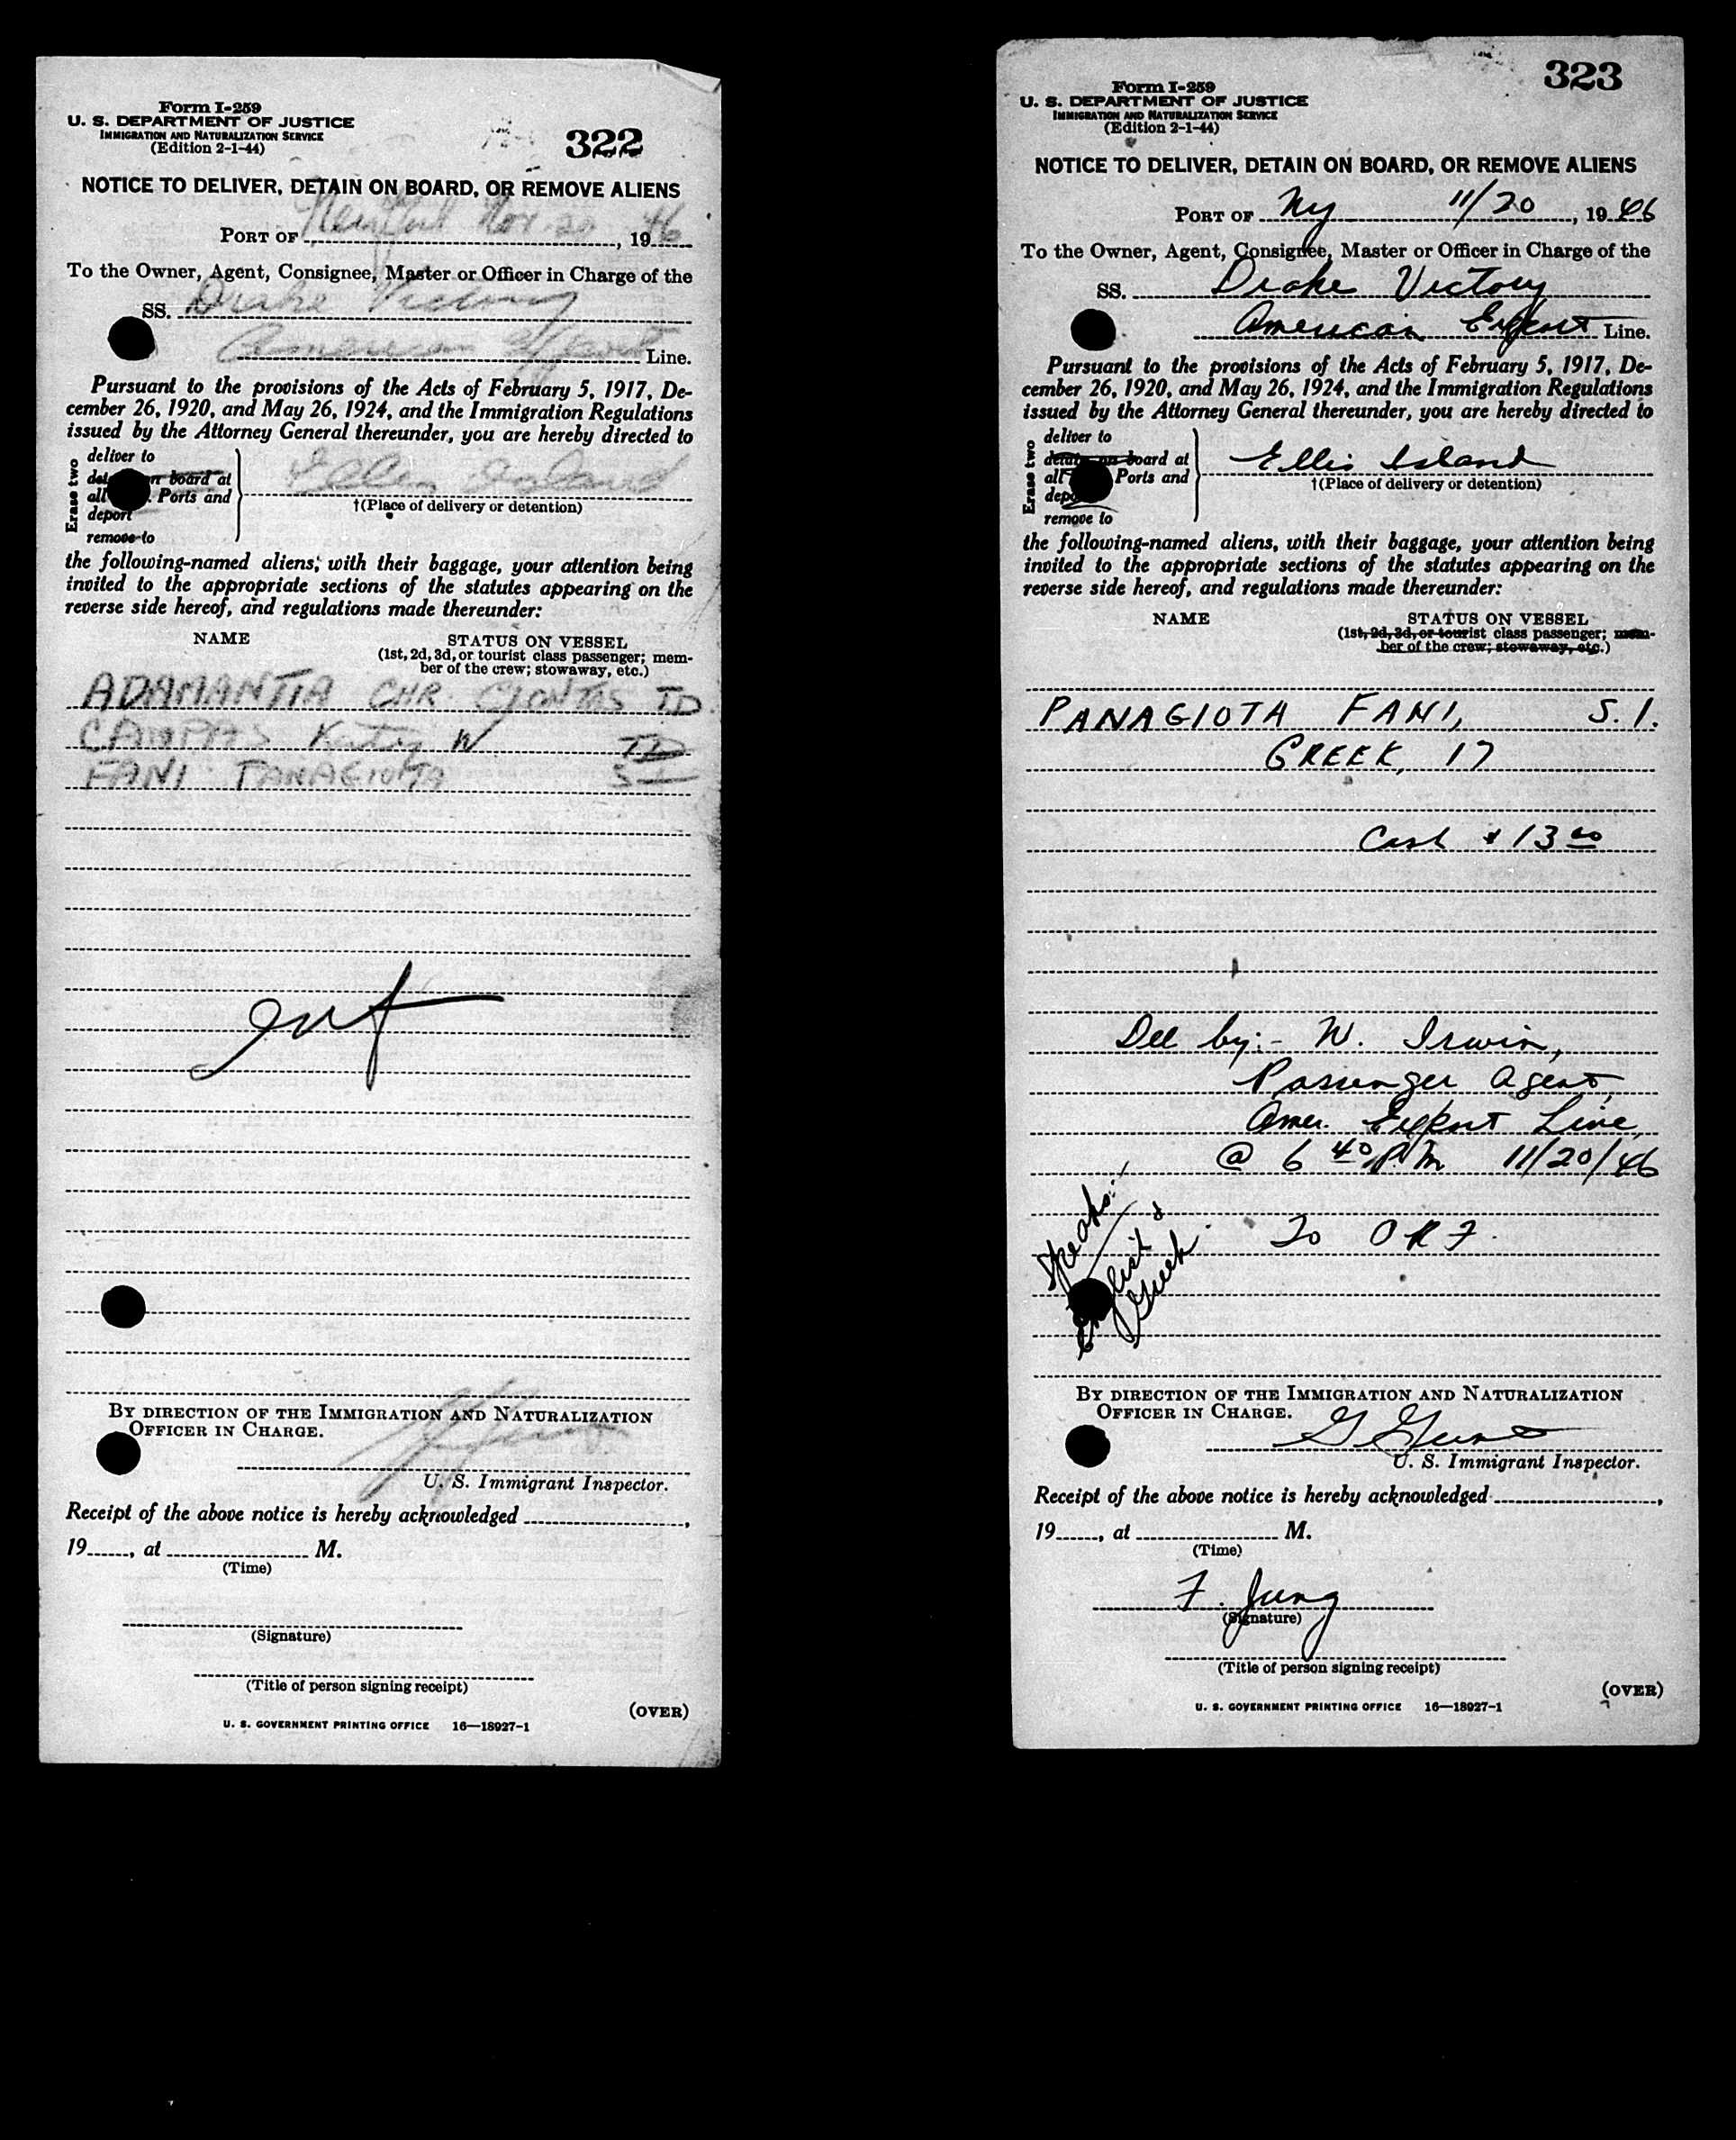 Form I-259
U. S. DEPARTMENT OF JUSTICE
IMMIGRATION AND NATURALIZATION SERVICE
(Edition 2-1-44)
322
NOTICE TO DELIVER, DETAIN ON BOARD, OR REMOVE ALIENS
PORT OF New York Nov. 20, 1946
To the Owner, Agent, Consignee, Master or Officer in Charge of the
SS. Drake Victory
American Export Line.
Pursuant to the provisions of the Acts of February 5, 1917, De-
cember 26, 1920, and May 26, 1924, and the Immigration Regulations
issued by the Attorney General thereunder, you are hereby directed to
Erase two
deliver to
on board at
all Ports and
deport
remove to
Ellis Island
†(Place of delivery or detention)
the following-named aliens, with their baggage, your attention being
invited to the appropriate sections of the statutes appearing on the
reverse side hereof, and regulations made thereunder:
NAME STATUS ON VESSEL
(1st, 2d, 3d, or tourist class passenger; mem-
ber of the crew; stowaway, etc.)
ADAMANTIA CHR. TD.
W TD
FANI PANAGIOTA S I
BY DIRECTION OF THE IMMIGRATION AND NATURALIZATION
OFFICER IN CHARGE.
U. S. Immigrant Inspector.
Receipt of the above notice is hereby acknowledged ,
19 , at M.
(Time)
(Signature)
(Title of person signing receipt)
(OVER)
U. S. GOVERNMENT PRINTING OFFICE 16—18927-1
323
Form I-259
U. S. DEPARTMENT OF JUSTICE
IMMIGRATION AND NATURALIZATION SERVICE
(Edition 2-1-44)
NOTICE TO DELIVER, DETAIN ON BOARD, OR REMOVE ALIENS
PORT OF Ny 11/20, 1946
To the Owner, Agent, Consignee, Master or Officer in Charge of the
SS. Drake Victory
American Export Line.
Pursuant to the provisions of the Acts of February 5, 1917, De-
cember 26, 1920, and May 26, 1924, and the Immigration Regulations
issued by the Attorney General thereunder, you are hereby directed to
Erase two
deliver to
detain on board at
all Ports and
remove to
Ellis Island
†(Place of delivery or detention)
the following-named aliens, with their baggage, your attention being
invited to the appropriate sections of the statutes appearing on the
reverse side hereof, and regulations made thereunder:
NAME STATUS ON VESSEL
(1st, 2d, 3d, or tourist class passenger; mem-
ber of the crew; stowaway, etc.)
PANAGIOTA FANI, S.I.
GREEK, 17
Cash $ 13 00
Del by:- W. Irwin,
Passenger Agent,
Amer. Export Line,
@ 6 40 P.M 11/20/46
To
Speaks:-
English &
Greek.
BY DIRECTION OF THE IMMIGRATION AND NATURALIZATION
OFFICER IN CHARGE.
U. S. Immigrant Inspector.
Receipt of the above notice is hereby acknowledged ,
19 , at M.
(Time)
F. Jung
(Signature)
(Title of person signing receipt)
(OVER)
U. S. GOVERNMENT PRINTING OFFICE 16—18927-1